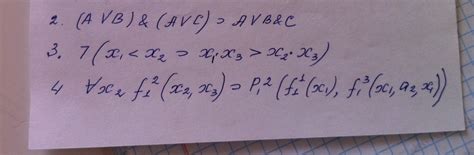 2. (A ∨ B) & (A ∨ C) ⊃ A ∨ B & C
3. ⌉ (x₁ < x₂ ⊃ x₁·x₃ > x₂·x₃)
4 ∀x₂ f₁²(x₂, x₃) ⊃ P₁²(f₁¹(x₁), f₁³(x₁, a₂, x₁))